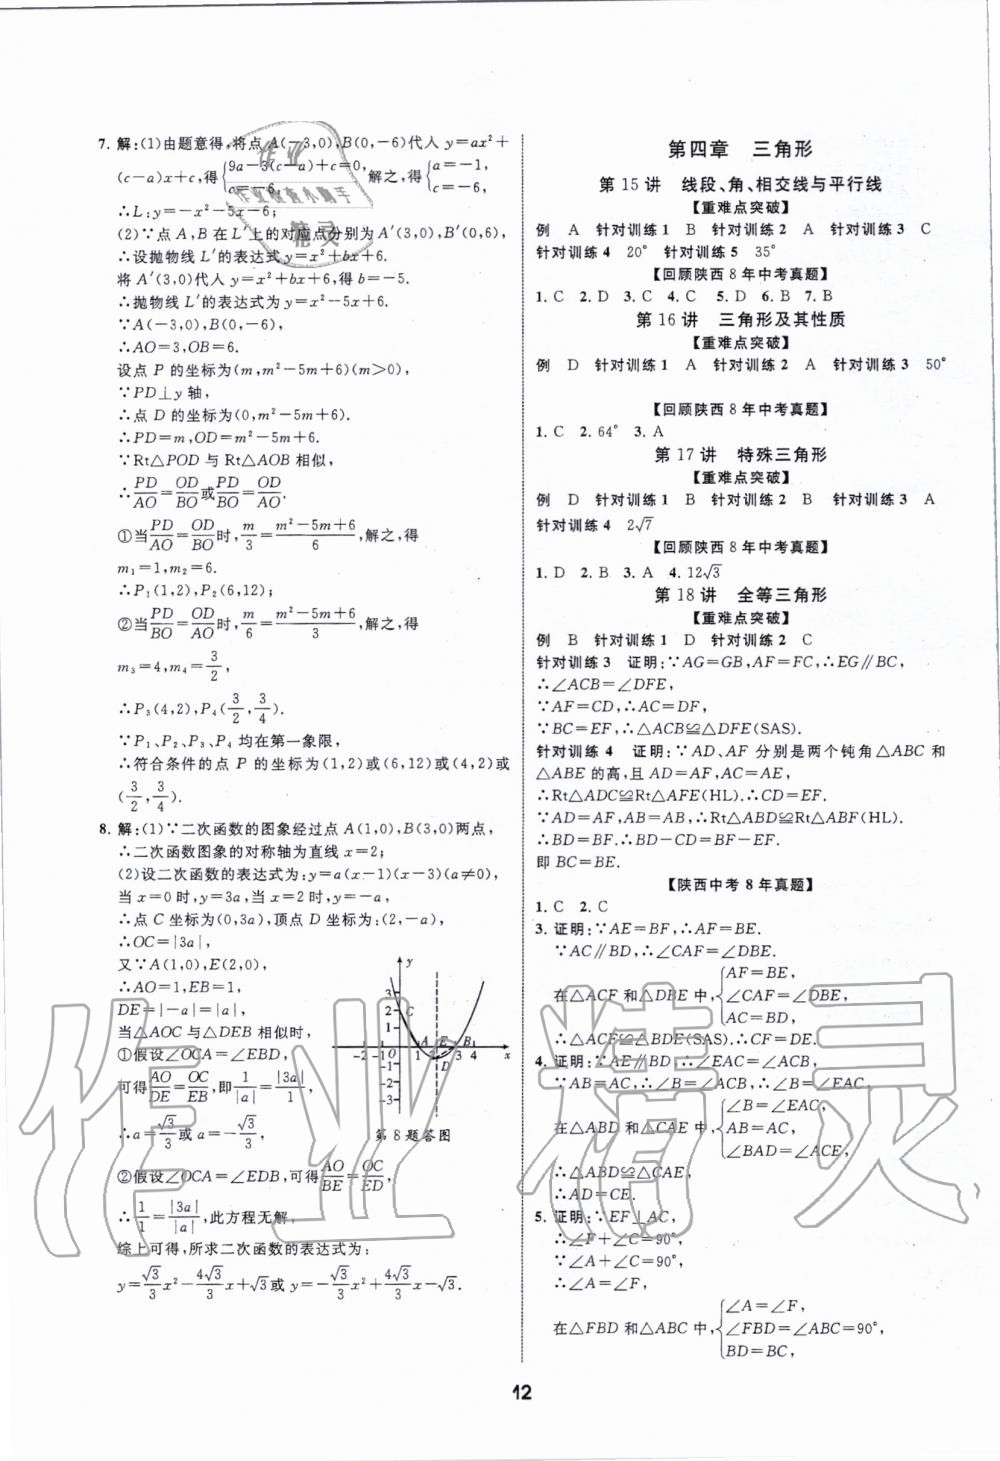 7. 解:(1)由题意得,将点 A(-3,0),B(0,-6)代人 y=ax²+
(c-a)x+c,得{9a-3(c-a)+c=0, c=-6, 解之,得{a=-1, c=-6,
∴L:y=-x²-5x-6;
(2)∵点 A,B在 L′上的对应点分别为 A′(3,0),B′(0,6),
∴设抛物线 L′的表达式 y=x²+bx+6.
将 A′(3,0)代人 y=x²+bx+6,得 b=-5.
∴抛物线 L′的表达式为 y=x²-5x+6.
∵A(-3,0),B(0,-6),
∴AO=3,OB=6.
设点 P 的坐标为(m,m²-5m+6)(m>0),
∵PD⊥y 轴,
∴点 D 的坐标为(0,m²-5m+6).
∴PD=m,OD=m²-5m+6.
∵Rt△POD 与 Rt△AOB 相似,
∴PD/AO=OD/BO或PD/BO=OD/AO.
①当PD/AO=OD/BO时,m/3=(m²-5m+6)/6,解之,得
m₁=1,m₂=6.
∴P₁(1,2),P₂(6,12);
②当PD/BO=OD/AO时,m/6=(m²-5m+6)/3,解之,得
m₃=4,m₄=3/2,
∴P₃(4,2),P₄(3/2,3/4).
∵P₁、P₂、P₃、P₄ 均在第一象限,
∴符合条件的点 P 的坐标为(1,2)或(6,12)或(4,2)或
(3/2,3/4).
8. 解:(1)∵二次函数的图象经过点 A(1,0),B(3,0)两点,
∴二次函数图象的对称轴为直线 x=2;
(2)设二次函数的表达式为:y=a(x-1)(x-3)(a≠0),
当 x=0 时,y=3a,当 x=2 时,y=-a,
∴点 C 坐标为(0,3a),顶点 D 坐标为:(2,-a),
∴OC=|3a|,
又∵A(1,0),E(2,0),
∴AO=1,EB=1,
DE=|-a|=|a|,
当△AOC与△DEB 相似时,
①假设∠OCA=∠EBD,
可得AO/DE=OC/EB,即1/|a|=|3a|/1
∴a=√3/3或 a=-√3/3
②假设∠OCA=∠EDB,可得AO/BE=OC/ED,
∴1/1=|3a|/|a|,此方程无解,
综上可得,所求二次函数的表达式为:
y=√3/3x²-4√3/3x+√3或 y=-√3/3x²+4√3/3x-√3.
y
3
2
C
1
A E B
-2 -1 O 1 3 4 x
D
-1
-2
-3
第 8 题答图
第四章 三角形
第 15 讲 线段、角、相交线与平行线
【重难点突破】
例 A 针对训练 1 B 针对训练 2 A 针对训练 3 C
针对训练 4 20° 针对训练 5 35°
【回顾陕西 8 年中考真题】
1. C 2. D 3. C 4. C 5. D 6. B 7. B
第 16 讲 三角形及其性质
【重难点突破】
例 D 针对训练 1 A 针对训练 2 A 针对训练 3 50°
【回顾陕西 8 年中考真题】
1. C 2. 64° 3. A
第 17 讲 特殊三角形
【重难点突破】
例 D 针对训练 1 B 针对训练 2 B 针对训练 3 A
针对训练 4 2√7
【回顾陕西 8 年中考真题】
1. D 2. B 3. A 4. 12√3
第 18 讲 全等三角形
【重难点突破】
例 B 针对训练 1 D 针对训练 2 C
针对训练 3 证明:∵AG=GB,AF=FC,∴EG∥BC,
∴∠ACB=∠DFE,
∵AF=CD,∴AC=DF,
∵BC=EF,∴△ACB≌△DFE(SAS).
针对训练 4 证明:∵AD、AF 分别是两个钝角△ABC 和
△ABE 的高,且 AD=AF,AC=AE,
∴Rt△ADC≌Rt△AFE(HL).∴CD=EF.
∵AD=AF,AB=AB,∴Rt△ABD≌Rt△ABF(HL).
∴BD=BF.∴BD-CD=BF-EF.
即 BC=BE.
【陕西中考 8 年真题】
1. C 2. C
3. 证明:∵AE=BF,∴AF=BE.
∵AC∥BD,∴∠CAF=∠DBE.
在△ACF 和△DBE 中,{AF=BE, ∠CAF=∠DBE, AC=BD.
∴△ACF≌△BDE(SAS).∴CF=DE.
4. 证明:∵AE∥BD,∴∠EAC=∠ACB,
∵AB=AC,∴∠B=∠ACB,∴∠B=∠EAC,
在△ABD 和△CAE 中,{∠B=∠EAC, AB=AC, ∠BAD=∠ACE,
∴△ABD≌△CAE,
∴AD=CE.
5. 证明:∵EF⊥AC,
∴∠F+∠C=90°,
∵∠A+∠C=90°,
∴∠A=∠F,
在△FBD 和△ABC 中,{∠A=∠F, ∠FBD=∠ABC=90°, BD=BC,
12
作业精灵
作业检查小助手